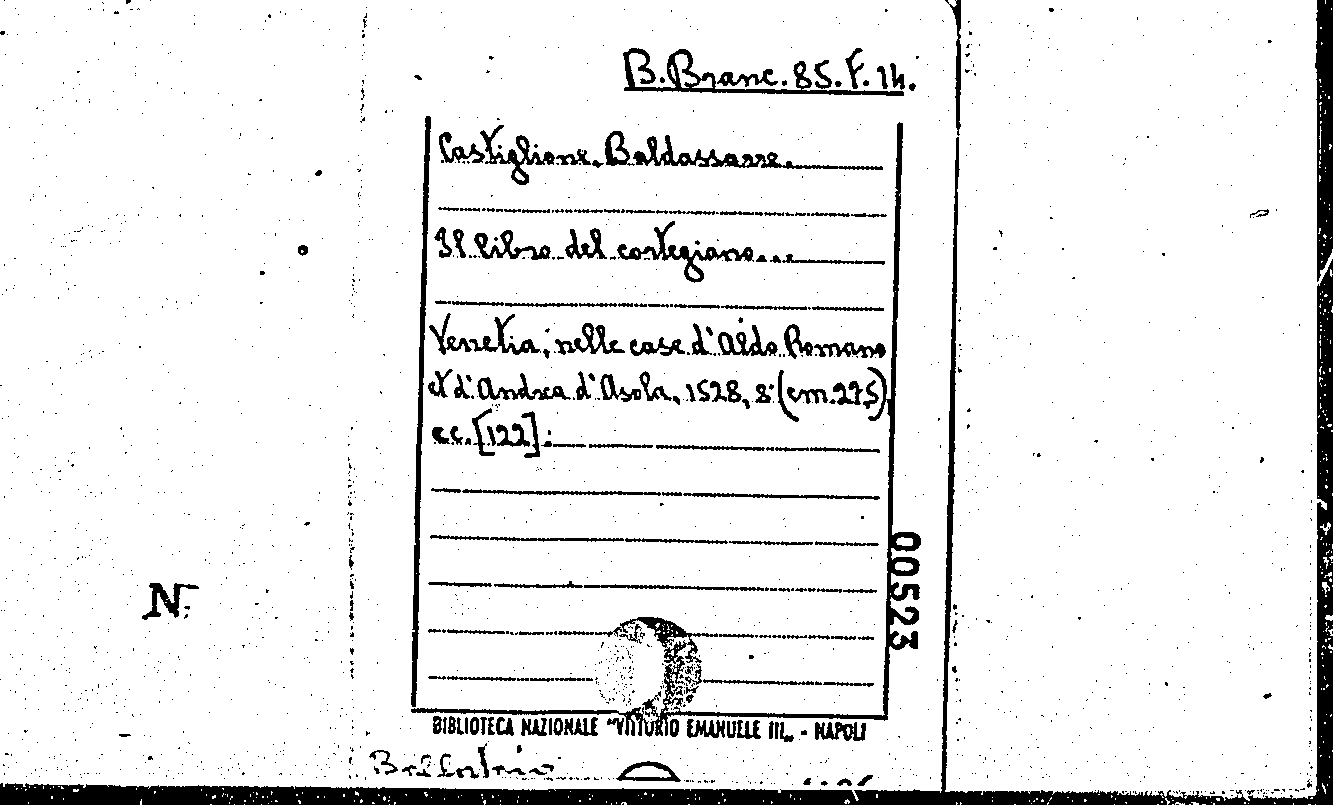 B. Branc. 85. F. 14.
Castiglione, Baldassarre.
Il libro del cortegiano...
Venetia, nelle case d'Aldo Romano
et d'Andrea d'Asola, 1528, 8° (cm. 27,5)
cc. [122].
00523
N.
BIBLIOTECA NAZIONALE "VITTORIO EMANUELE III„ - NAPOLI